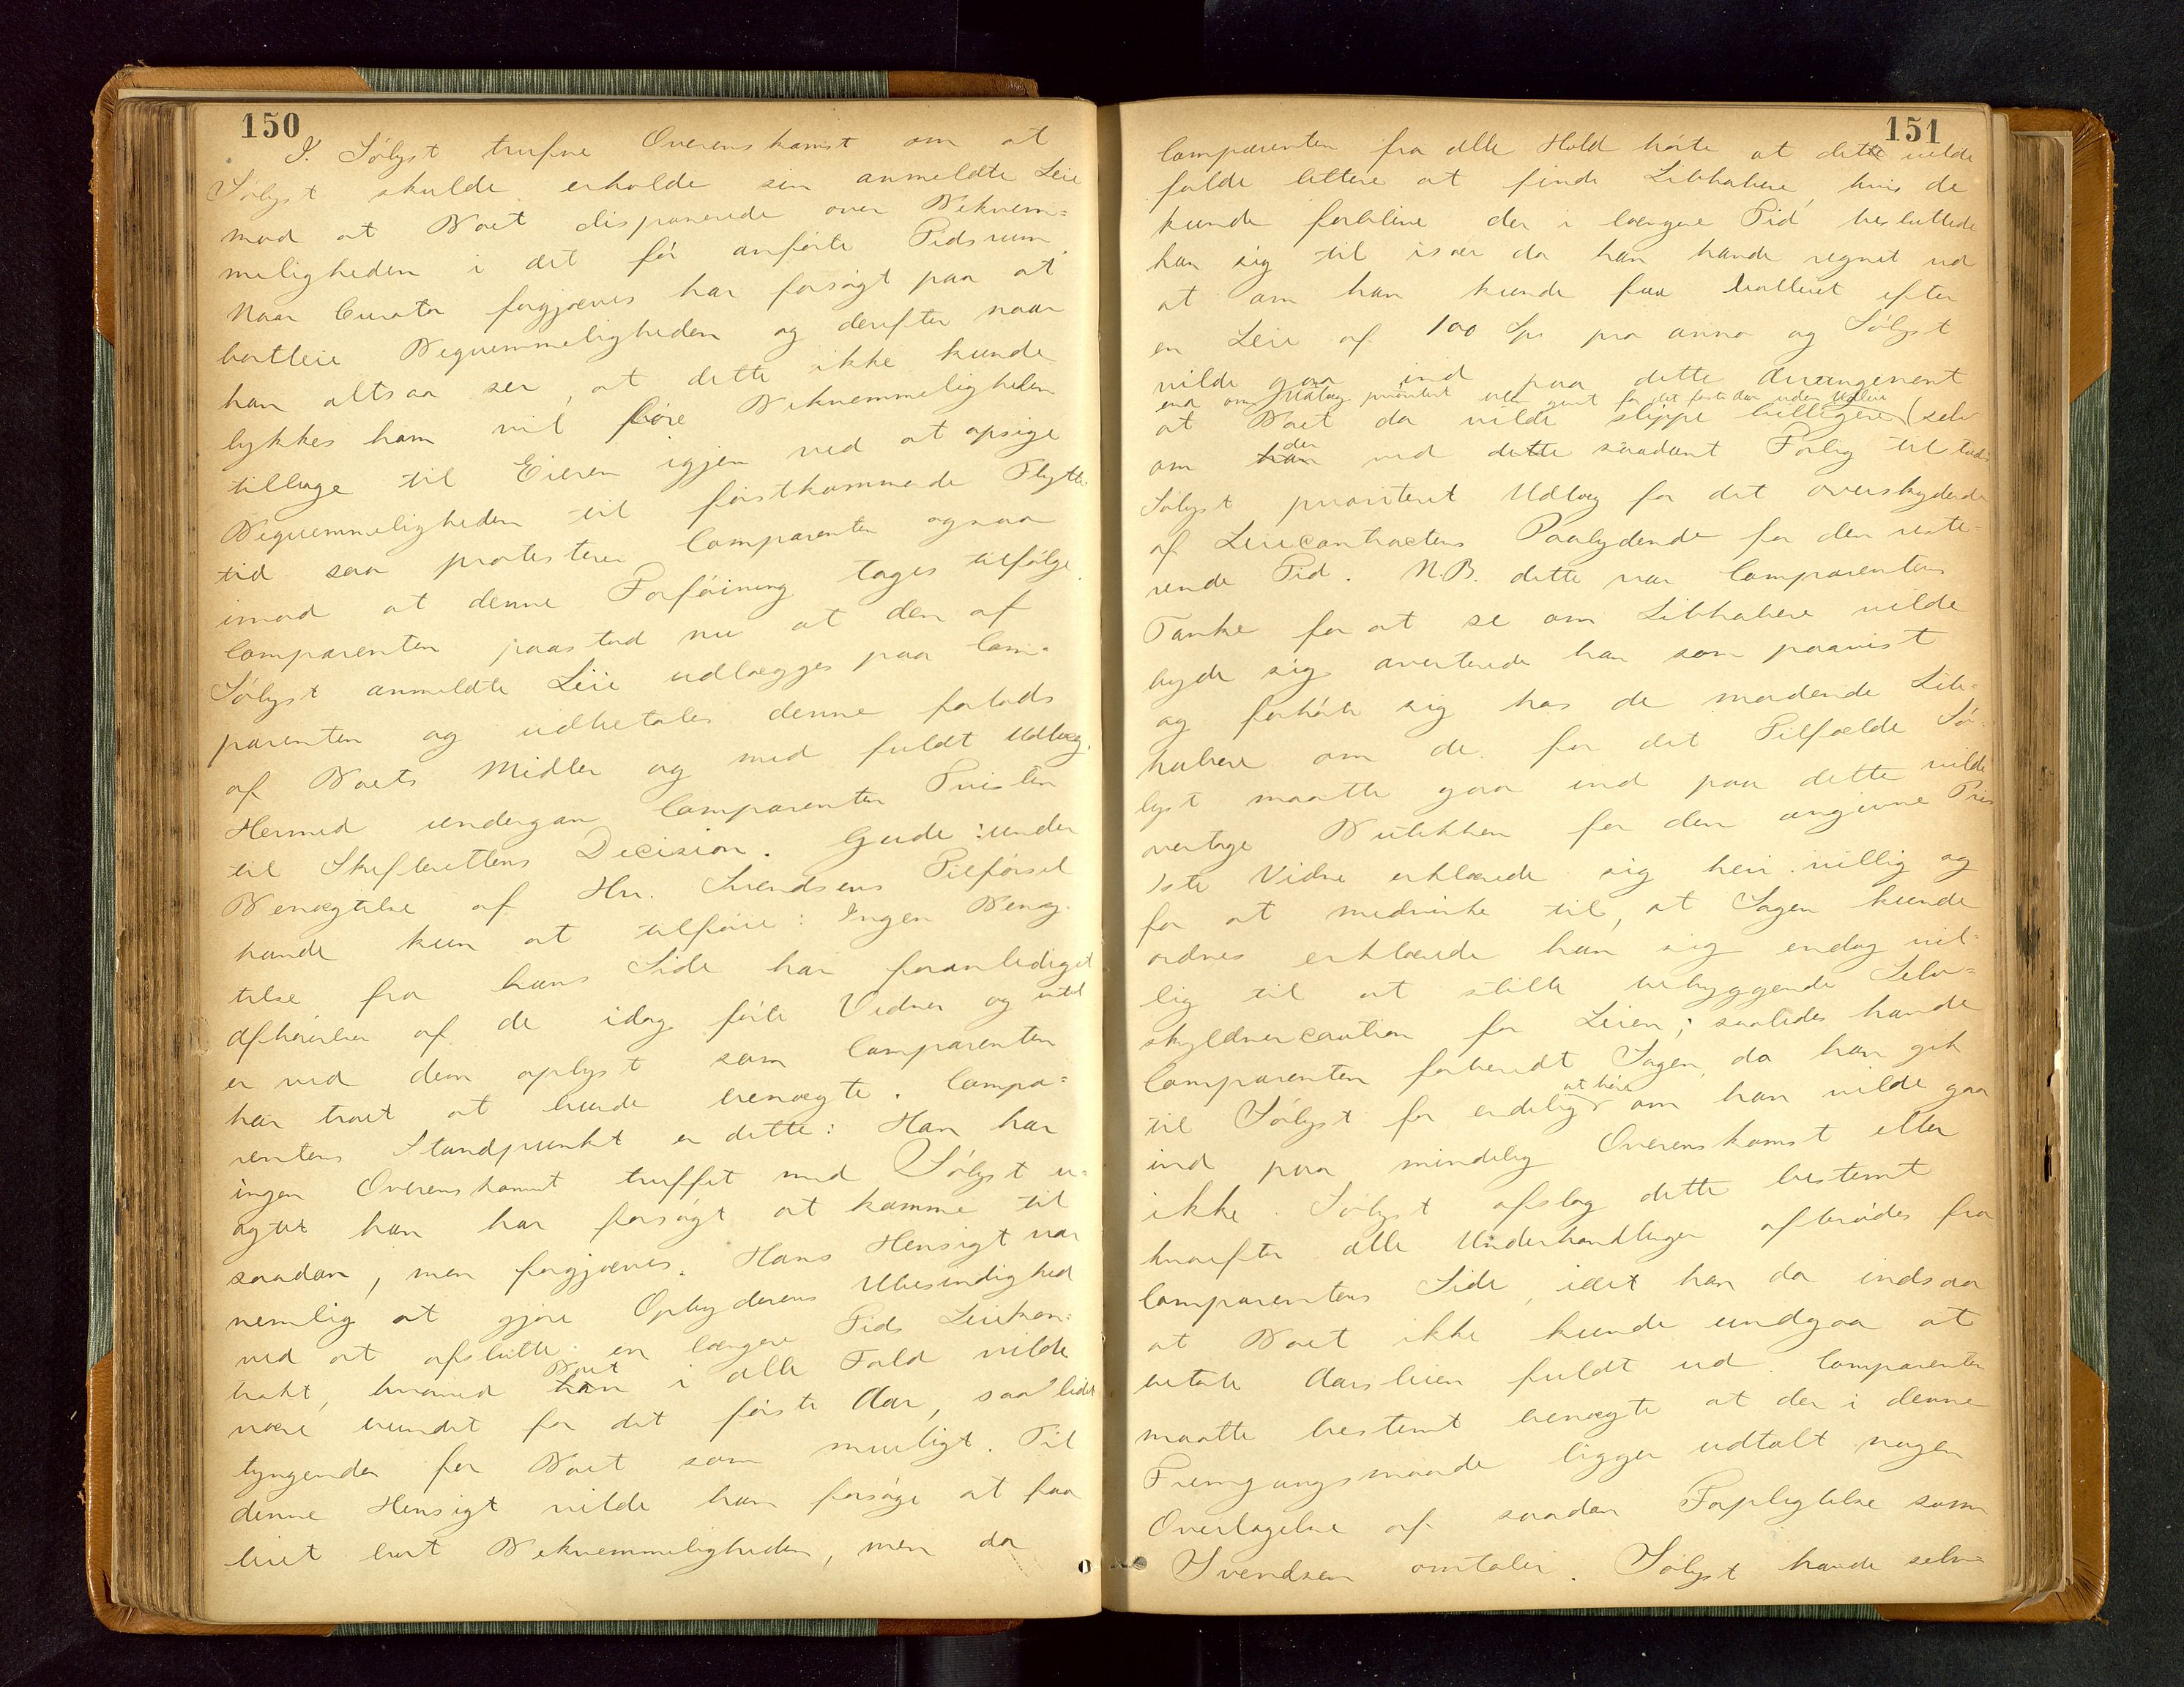 150
J. Sölyst trufne Overenskomst om at
Sölyst skulde erholde sin anmeldte Leie
mod at Boet disponerede over Bekvem=
meligheden i det før anförte Tidsrum.
Naar Curator forgjæves har forsögt paa at
bortleie Bequemmeligheden og derefter naar
han altsaa ser, at dette ikke kunde
lykkes ham vil före Bekvemmeligheden
tilbage til Eieren igjen ved at opsige
Bequemmeligheden til förstkommende Flytte
tid saa protesterer Comparenten ogsaa
imod at denne Forföining tages tilfölge.
Comparenten paastod nu at den af
Sölyst anmeldte Leie udlægges paa Com=
parenten og udbetales denne forlods
af Boets Midler og med fuldt Udlæg.
Hermed undergav Comparenten Tvisten
til Skifterettens Decision. Gude: under
Benægtelse af Hr. Svendsens Tilförsel
havde kun at tilföie: Ingen Benæg
telse fra hans Side har foranlediget
Afhörelsen af de idag förte Vidner og intet
er ved dem oplyst som Comparenten
har troet at burde benægte. Compa=
rentens Standpunkt er dette: Han har
ingen Overenskomst truffet med Sölyst u=
agtet han har forsögt at komme til
saadan, men forgjæves. Hans Hensigt var
nemlig at gjöre Opbyderens Ubesindighed
ved at afslutte en længere Tids Leiekon=
trakt, hvorved han Boet i alle Fald vilde
være bundet for det förste Aar, saa lidet
tyngende for Boet som muligt. Til
denne Hensigt vilde han forsöge at faa
leiet bort Bekvemmeligheden, men da
151
Comparenten fra alle Hold hörte at dette vilde
falde lettere at finde Liebhabere, hvis de
kunde forblive der i længere Tid, besluttede
han sig til især da han havde regnet ud
at om han kunde faa bortleiet efter
en Leie af 100 Spd pro anno og Sölyst
vilde gaa ind paa dette Arrangement
end om Udlæg prioritert blev givet for det förste Aar uden Udleie
at Boet da vilde slippe billigere (selv
om han der ved dette saadant Forlig tillodes
Sölyst prioriteret Udlæg for det overskydende
af Leiecontractens Paalydende for den reste=
rende Tid. N.B. dette var Comparentens
Tanke for at se om Liebhabere vilde
byde sig averterede han som paavist
og forhörte sig hos de mødende Lieb=
habere om de for det Tilfælde Sö=
lyst maatte gaa ind paa dette vilde
overtage Butikken for den angivne Pris
1ste Vidne erklærede sig heri villig og
for at medvirke til, at Sagen kunde
ordnes erklærede han sig endog vil=
lig til at stille betryggende Selv=
skyldnercaution for Leien; saaledes havde
Comparenten forberedt Sagen, da han gik
til Sölyst for endelig at höre om han vilde gaa
ind paa mindelig Overenskomst eller
ikke. Sölyst afslog dette bestemt
hvorefter alle Underhandlinger afbrödes fra
Comparentens Side, idet han da indsaa
at Boet ikke kunde undgaa at
betale Aarsleien fuldt ud. Comparenten
maatte bestemt benægte at der i denne
Fremgangsmaade ligger udtalt nogen
Overtagelse af saadan Forpligtelse som
Svendsen omtaler. Sölyst havde selv